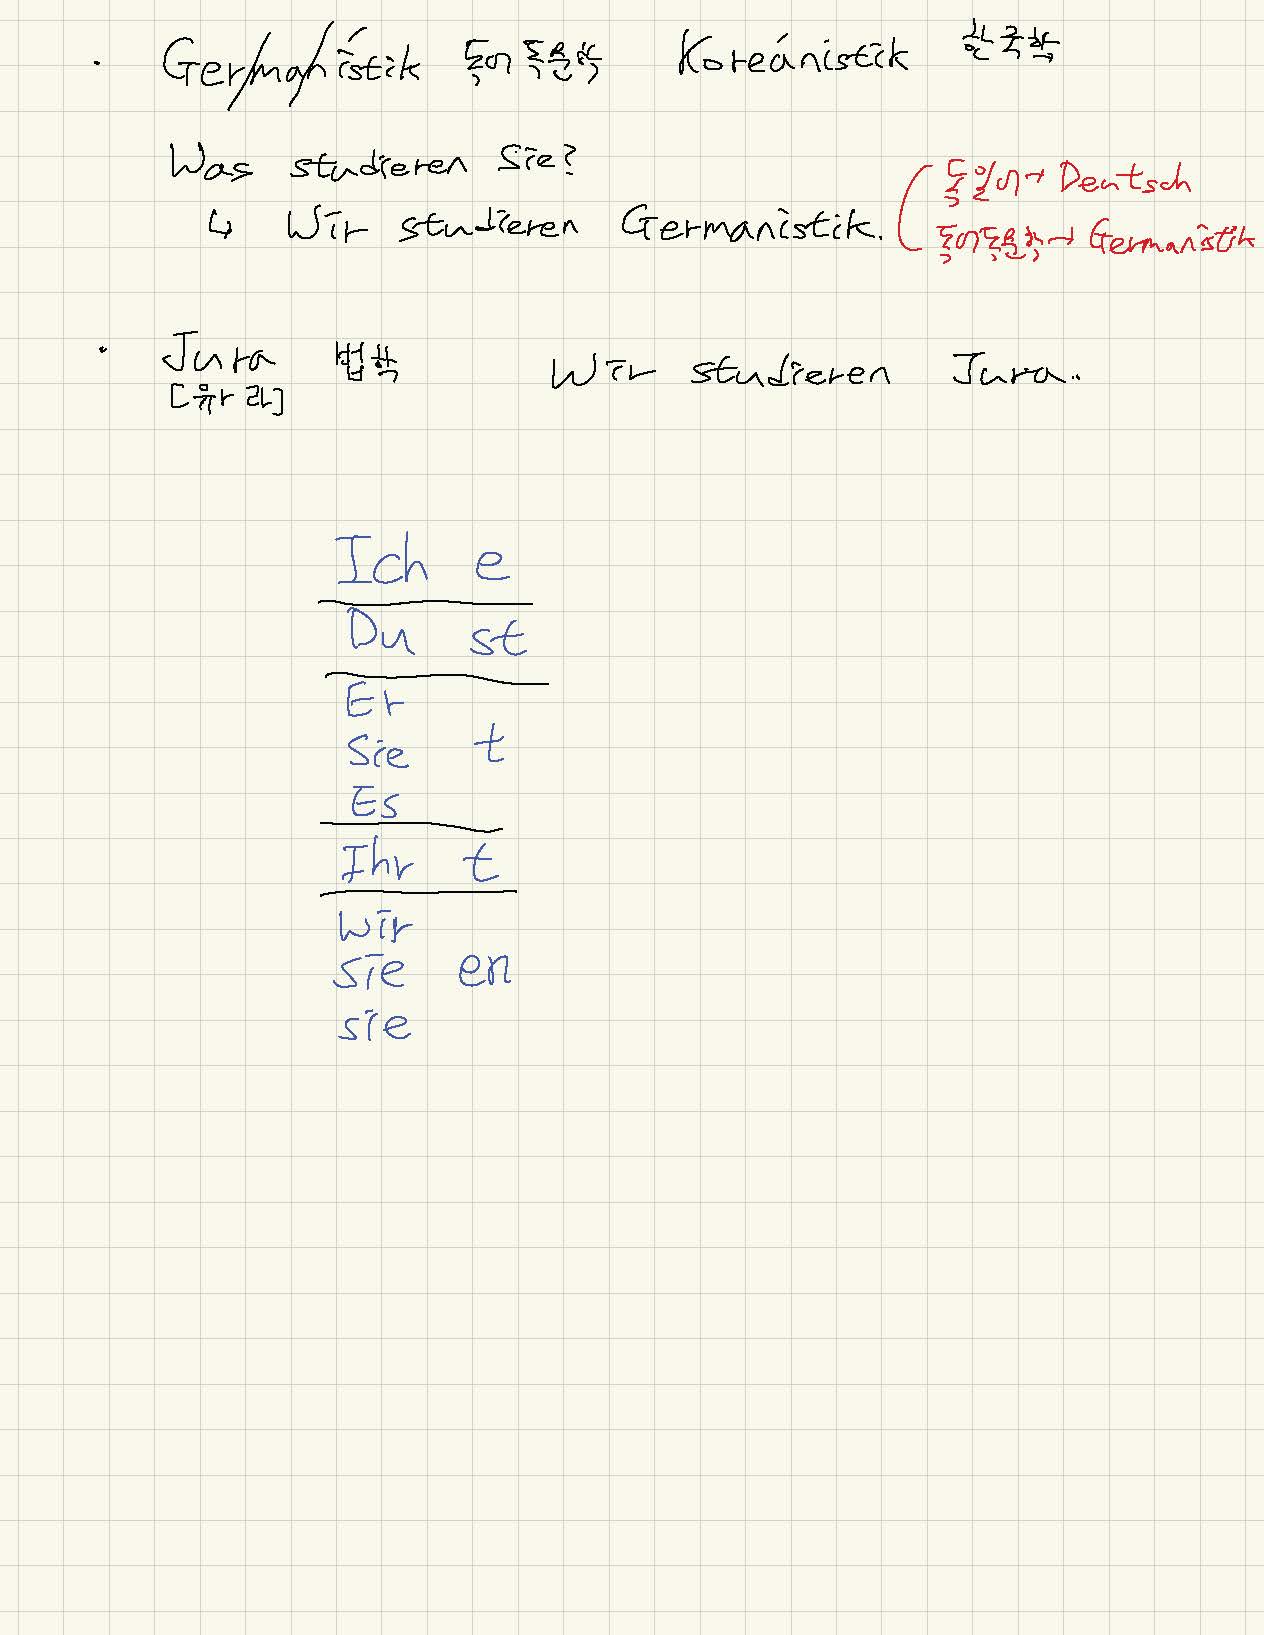 · Ger/man/istik 독어독문학 Koreánistik 한국학
Was studieren Sie?
↳ Wir studieren Germanistik.
독일어→ Deutsch
독어독문학→ Germanistik
· Jura 법학 Wir studieren Jura..
[유라]
Ich e
Du st
Er
Sie t
Es
Ihr t
Wir
sie en
sie